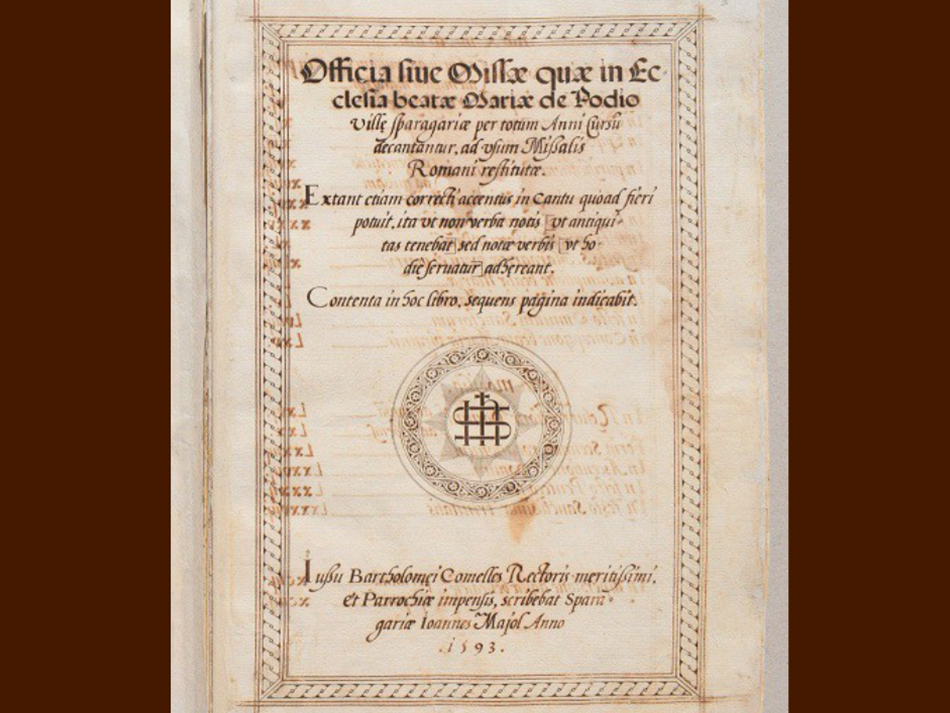 Officia siue Missæ quæ in Ec-
clesia beatæ Mariæ de Podio
Villę sparagariæ per totum Anni Cursū
decantantur, ad vsum Missalis
Romani restitutæ.
Extant etiam correcti accentus in Cantu quoad fieri
potuit, ita vt non verba notis [vt antiqui-
tas tenebat] sed notæ verbis [vt ho-
die seruatur] adhereant.
Contenta in hoc libro, sequens pagina indicabit.
IHS
Iussu Bartholomęi Comelles Rectoris meritissimi,
et Parrochiæ impensis, scribebat Spara-
gariæ Ioannes Majol Anno
.1593.